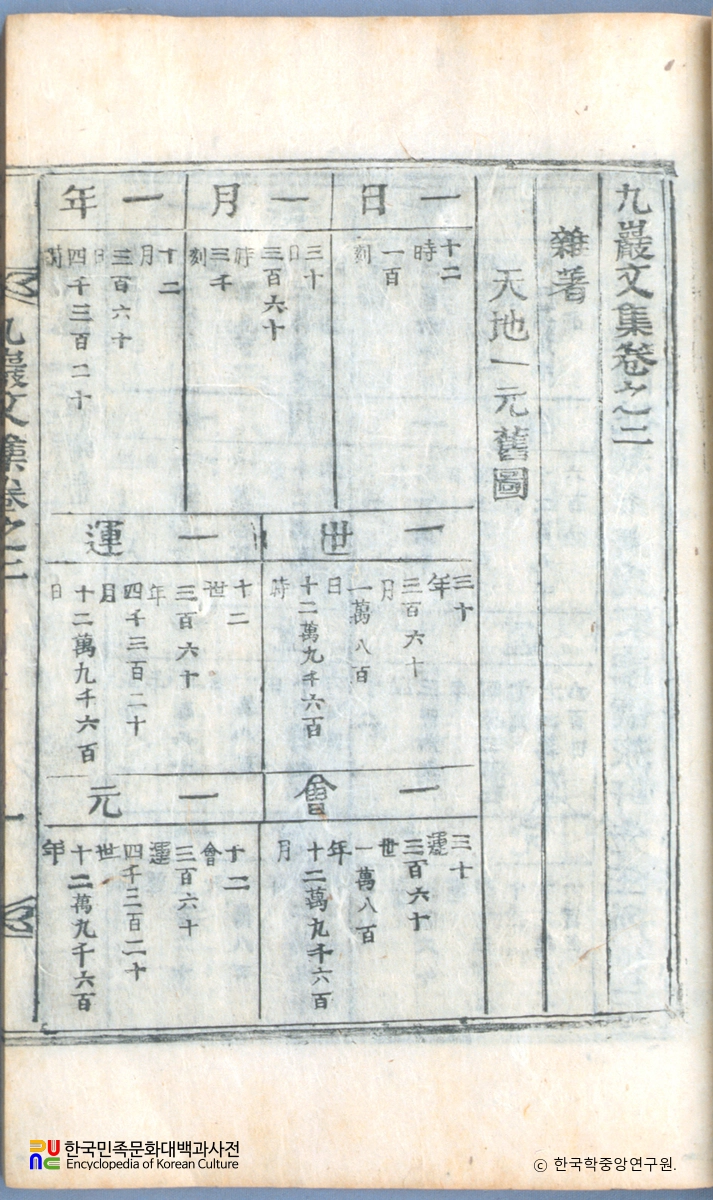 九巖文集卷之二
雜著
天地一元舊圖
一日
十二時
一百刻
一月
三十日
三百六十時
三千刻
一年
十二月
三百六十日
四千三百二十時
一世
三十年
三百六十月
一萬八百日
十二萬九千六百時
一運
十二世
三百六十年
四千三百二十月
十二萬九千六百日
一會
三十運
三百六十世
一萬八百年
十二萬九千六百月
一元
十二會
三百六十運
四千三百二十世
十二萬九千六百年
九巖文集卷之二
一
한국민족문화대백과사전
Encyclopedia of Korean Culture
ⓒ 한국학중앙연구원.